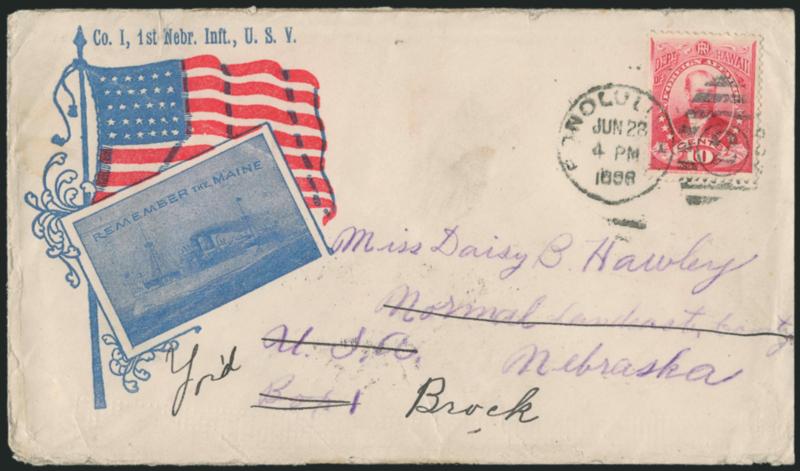 Co. I, 1st Nebr. Inft., U. S. V.
REMEMBER THE MAINE
DEPT. OF FOREIGN AFFAIRS HAWAII
CENTS
10
HONOLULU
JUN 28
4 PM
1898
Miss Daisy B. Hawley
Normal
U. S. A.
Nebraska
Box 1
Brock